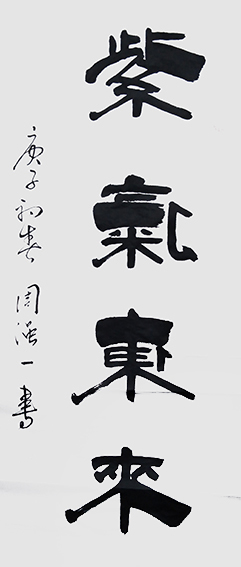 紫氣東來
庚子初春 周强一書